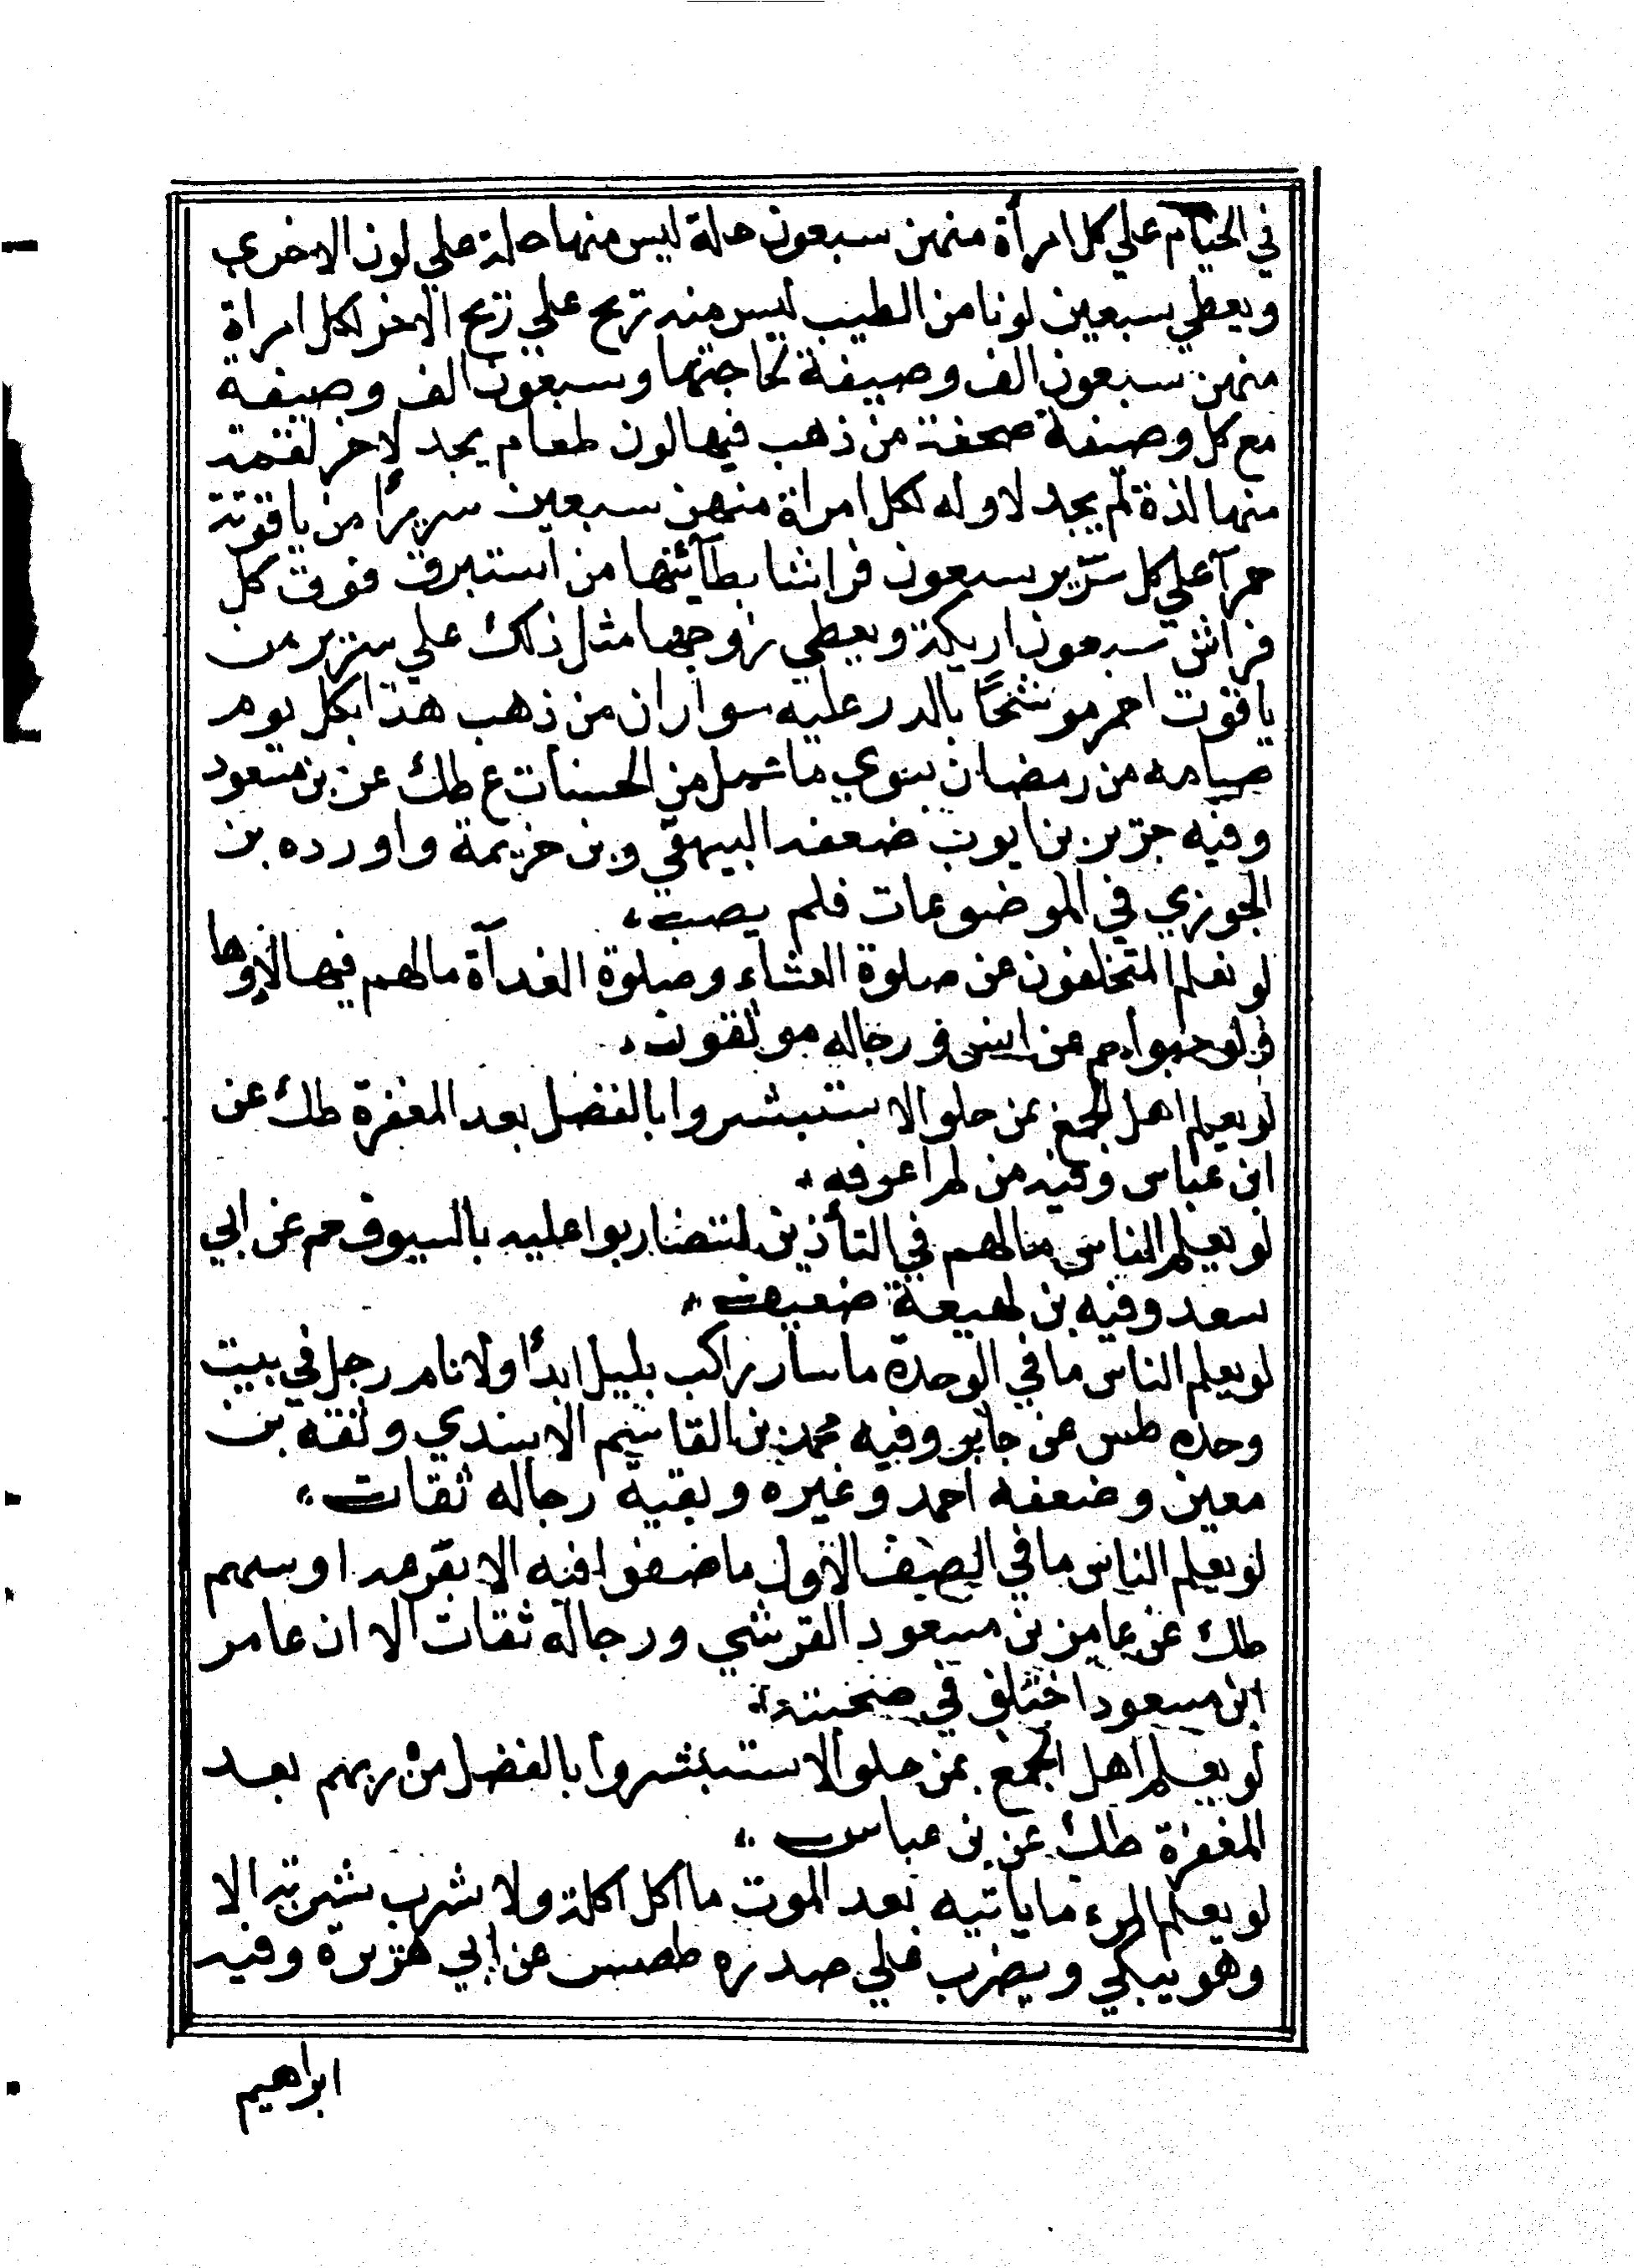 في الخيام علي كل امرأة منهن سبعون حلة ليس منها حلة علي لون الاخري
ويعطي سبعين لونا من الطيب ليس منه ريح علي ريح الاخر لكل امراة
منهن سبعون الف وصيفة لحاجتها وسبعون الف وصيفة
مع كل وصيفة صحفة من ذهب فيها لون طعام يجد لاخر لقمة
منها لذة لم يجد لاوله لكل امراة منهن سبعين سريرًا من ياقوتة
حمرآ علي كل سرير سبعون فراشا بطآئنها من استبرق فوق كل
فراش سبعون اريكة ويعطي زوجها مثل ذلك علي سرير من
ياقوت احمر موشحًا بالدر عليه سواران من ذهب هذا بكل يوم
صيامه من رمضان سوي ما عمل من الحسنات ع طك عن بن مسعود
وفيه جرير بن ايوب ضعفه البيهقي وبن خزيمة واورده بن
الجوزي في الموضوعات فلم يصب
لو يعلم المتخلفون عن صلوة العشاء وصلوة الغدآة مالهم فيها لاتوها
ولو حبوا حم عن انس ورجاله موثقون
لو يعلم اهل الجمع بمن حلوا لاستبشروا بالفضل بعد المغفرة طك عن
ابن عباس وفيه من لم اعرفه
لو يعلم الناس مالهم في التأذين لتضاربوا عليه بالسيوف حم عن ابي
سعد وفيه بن لهيعة ضعيف
لو يعلم الناس ما في الوحدة ما سار راكب بليل ابدًا ولا نام رجل في بيت
وحده طس عن جابر وفيه محمد بن القاسم الاسدي وثقه بن
معين وضعفه احمد وغيره وبقية رجاله ثقات
لو يعلم الناس ما في الصف الاول ما صفوا فيه الا بقرعة او سهم
طك عن عامر بن مسعود القرشي ورجاله ثقات الا ان عامر
ابن مسعود اختلف في صحبته
لو يعلم اهل الجمع بمن حلوا لاستبشروا بالفضل من ربهم بعد
المغفرة طك عن بن عباس
لو يعلم المرء ما ياتيه بعد الموت ما اكل اكلة ولا شرب شربة الا
وهو يبكي ويضرب علي صدره طصس عن ابي هريرة وفيه
ابراهيم